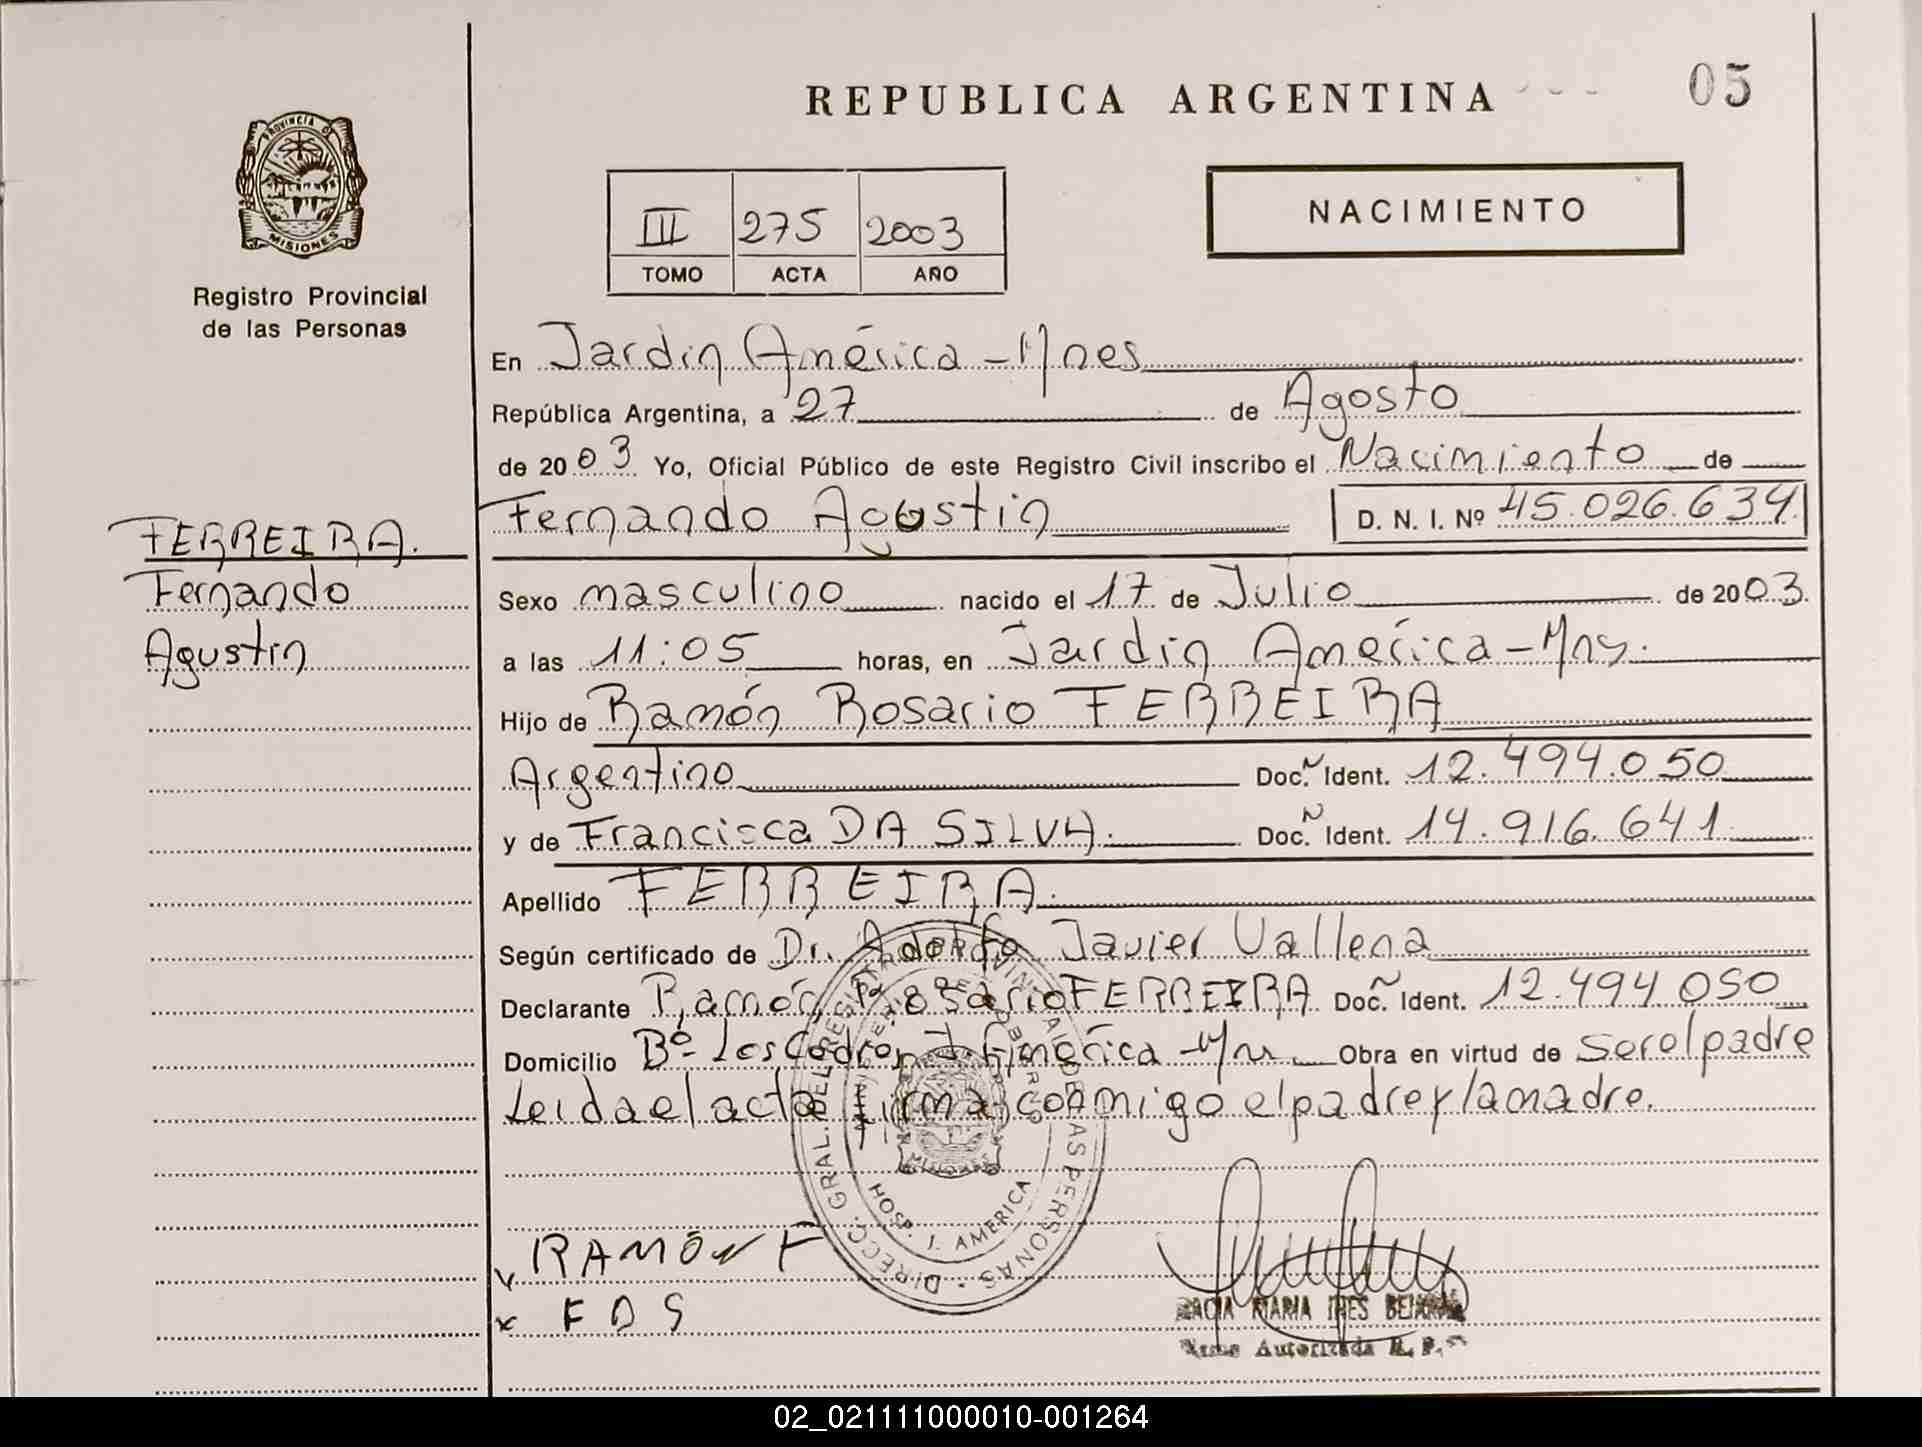 REPUBLICA ARGENTINA
05
PROVINCIA DE
MISIONES
Registro Provincial
de las Personas
III 275 2003
TOMO ACTA AÑO
NACIMIENTO
En Jardin América - Mnes
República Argentina, a 27 de Agosto
de 2003 Yo, Oficial Público de este Registro Civil inscribo el Nacimiento de
Fernando Agustin D. N. I. Nº 45.026.634
FERREIRA.
Fernando
Agustin
Sexo masculino nacido el 17 de Julio de 2003.
a las 11:05 horas, en Jardin América - Mns.
Hijo de Ramón Rosario FERREIRA
Argentino Doc. N Ident. 12.494.050
y de Francisca DA SILVA. Doc. N Ident. 14.916.641
Apellido FERREIRA.
Según certificado de Dr. Adolfo Javier Vallena
Declarante Ramón Rosario FERREIRA Doc. N Ident. 12.494.050
Domicilio Bº Los Cedros J. América - Mns Obra en virtud de ser el padre
Leida el acta firma conmigo el padre y la madre.
DIRECC. GRAL. DEL REGISTRO PROVINCIAL DE LAS PERSONAS
MINISTERIO DE GOBIERNO
MISIONES
HOSP. J. AMERICA
x RAMÓN F
x F D S
MARIA INES
Autorizada R. P.
02_021111000010-001264